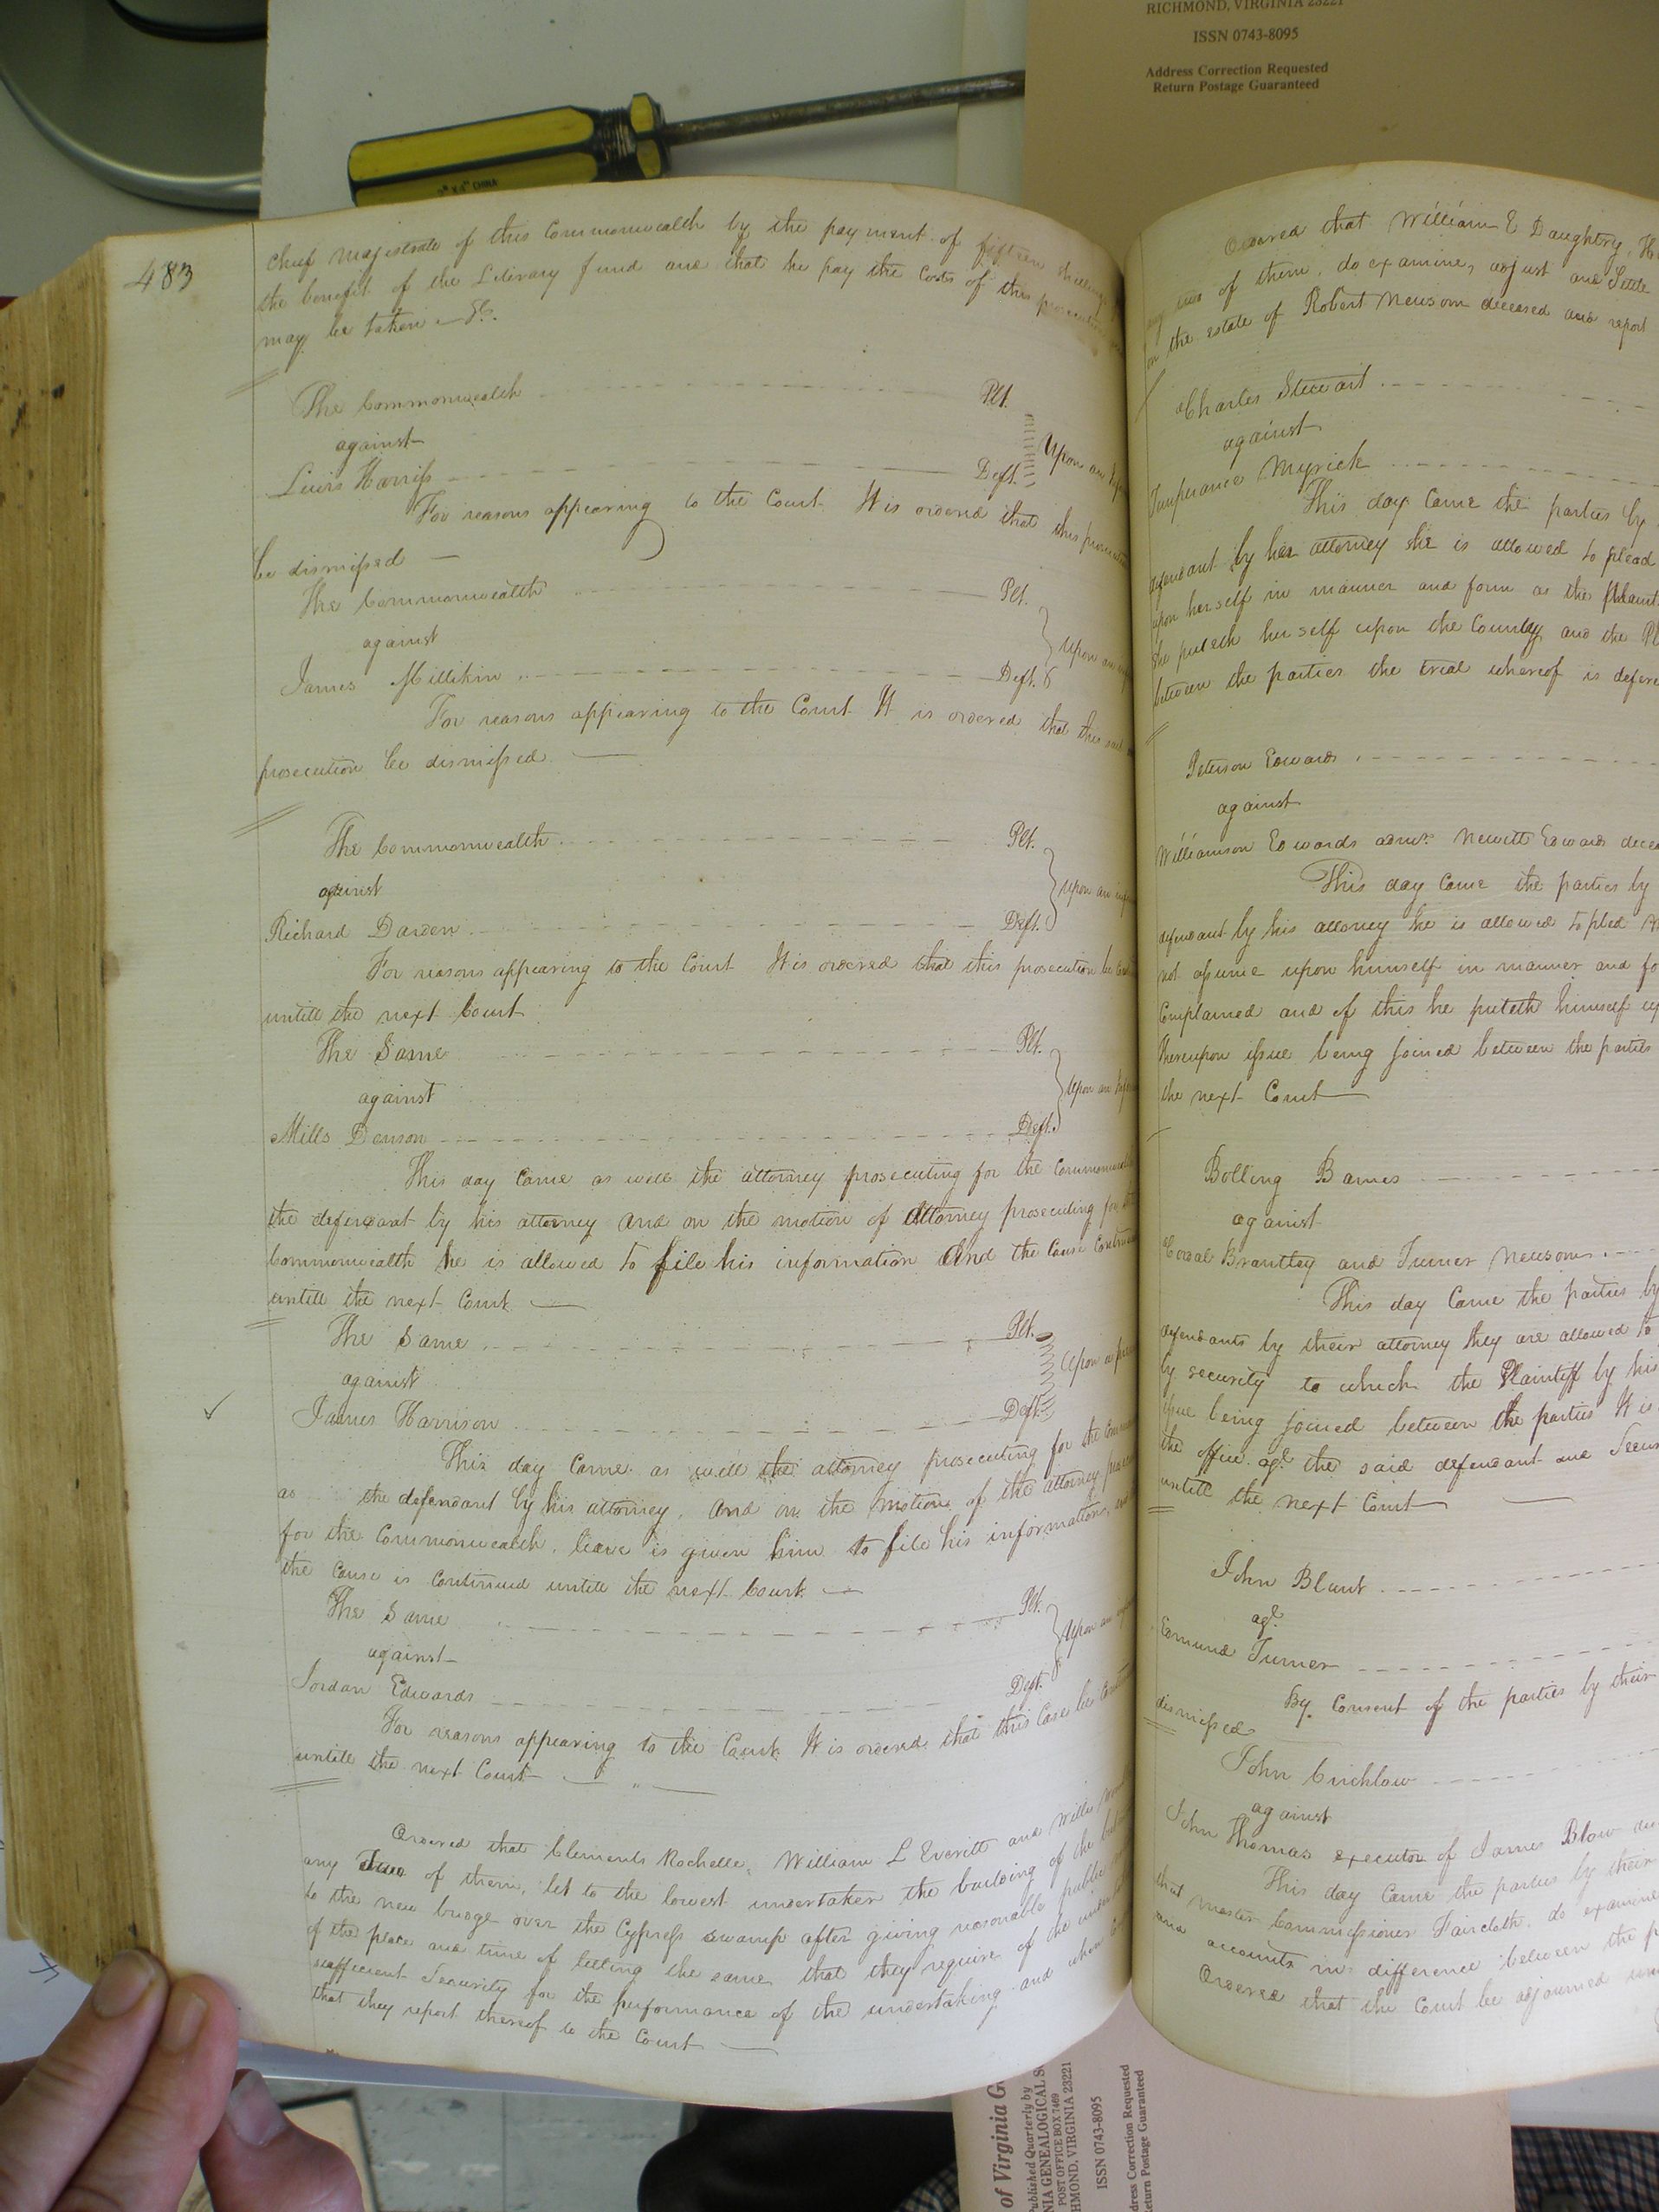 RICHMOND, VIRGINIA 23221
ISSN 0743-8095
Address Correction Requested
Return Postage Guaranteed
CHINA
483
chief magistrate of this Commonwealth by the payment of fifteen shillings
the benefit of the Literary fund and that he pay the Costs of this prosecution
may be taken &c.
The Commonwealth Plt.
against Upon an
Lewis Harriss Deft.
For reasons appearing to the Court It is ordered that this
be dismissed
The Commonwealth Plt.
against Upon an
James Millikin Deft.
For reasons appearing to the Court It is ordered that the
prosecution be dismissed
The Commonwealth Plt.
against Upon an
Richard Darden Deft.
For reasons appearing to the Court It is ordered that this prosecution be
untill the next Court
The Same Plt.
against Upon an
Mills Denson Deft.
This day Came as well the attorney prosecuting for the
the defendant by his attorney and on the motion of Attorney prosecuting for
Commonwealth he is allowed to file his information And the Cause
untill the next Court
The Same Plt.
against Upon
James Harrison Deft.
This day Came as well the attorney prosecuting for the
as the defendant by his attorney, and on the motion of the attorney
for the Commonwealth, leave is given him to file his information,
the Cause is Continued untill the next Court
The Same Plt.
against Upon an
Jordan Edwards Deft.
For reasons appearing to the Court It is ordered that this Case be
untill the next Court
Ordered that Clements Rochelle, William L Everitt and Willie
any Two of them, let to the lowest undertaker the building of the
to the new bridge over the Cypress swamp after giving reasonable public
of the place and time of letting the same, that they require of the
sufficient Security for the performance of the undertaking and when
that they report thereof to the Court
Ordered that William E Daughtry,
two of them, do examine, adjust and Settle
on the estate of Robert Newsom deceased and report
Charles Stewart
against
Temperance Myrick
This day Came the parties by
defendant by her attorney she is allowed to plead
upon herself in manner and form as the Plaint
she puteth herself upon the County and the
between the parties the trial whereof is
Peterson Edwards
against
Williamson Edwards admr. Newitt Edwards
This day Came the parties by
defendant by his attorney he is allowed to pled
not assume upon himself in manner and
Complained and of this he puteth himself
thereupon issue being joined between the parties
the next Court
Bolling Barnes
against
Brantley and Turner Newsom
This day Came the parties by
defendants by their attorney they are allowed to
by security to which the Plaintiff by his
issue being joined between the parties It is
the office agt. the said defendant and
untill the next Court
John Blunt
agt.
Edmund Turner
By Consent of the parties by their
dismissed
John Crichlow
against
John Thomas executor of James Blow
This day Came the parties by their
that master Commissioner Faircloth, do examine
and accounts in difference between the
Ordered that the Court be adjourned
of Virginia
Published Quarterly by
GENEALOGICAL
POST OFFICE BOX 7469
RICHMOND, VIRGINIA 23221
ISSN 0743-8095
Address Correction Requested
Return Postage Guaranteed